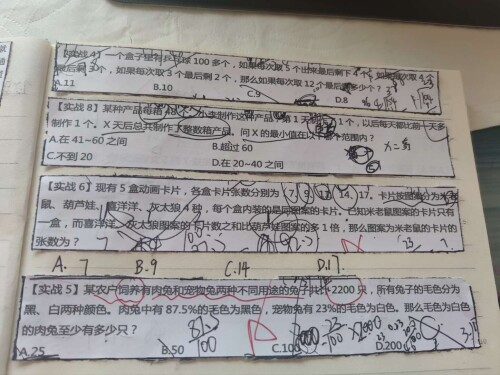 【实战 4】一个盒子里有乒乓球 100 多个，如果每次取 5 个出来最后剩下 4 个，如果每次取 4
最后剩 3 个，如果每次取 3 个最后剩 2 个，那么如果每次取 12 个最后剩多少个？
A.11 B.10 C.9 D.8
【实战 8】某种产品每箱 48 个。小李制作这种产品，第 1 天制作 1 个，以后每天都比前一天多
制作 1 个。X 天后总共制作了整数箱产品。问 X 的最小值在以下哪个范围内？
A.在 41~60 之间 B.超过 60
C.不到 20 D.在 20~40 之间
X=
【实战 6】现有 5 盒动画卡片，各盒卡片张数分别为：7、9、11、14、17。卡片按图案分为米老
鼠、葫芦娃、喜洋洋、灰太狼 4 种，每个盒内装的是同图案的卡片。已知米老鼠图案的卡片只有
一盒，而喜洋洋、灰太狼图案的卡片数之和比葫芦娃图案的多 1 倍，那么图案为米老鼠的卡片的
张数为？
A. 7 B. 9 C. 14 D. 17.
【实战 5】某农户饲养有肉兔和宠物兔两种不同用途的兔子共计 2200 只，所有兔子的毛色分为
黑、白两种颜色。肉兔中有 87.5%的毛色为黑色，宠物兔有 23%的毛色为白色。那么毛色为白色
的肉兔至少有多少只？
A.25 B.50 C.100 D.200